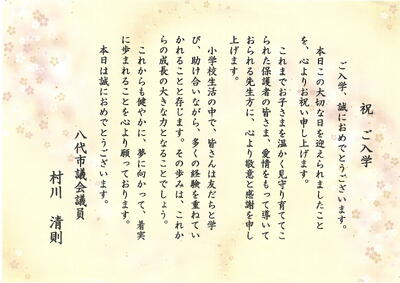 祝　ご入学
ご入学、誠におめでとうございます。
本日この大切な日を迎えられましたこと
を、心よりお祝い申し上げます。
これまでお子さまを温かく見守り育ててこ
られた保護者の皆さま、愛情をもって導いて
おられる先生方に、心より敬意と感謝を申し
上げます。
小学校生活の中で、皆さんは友だちと学
び、助け合いながら、多くの経験を重ねてい
かれることと存じます。その歩みは、これか
らの成長の大きな力となることでしょう。
これからも健やかに、夢に向かって、着実
に歩まれることを心より願っております。
本日は誠におめでとうございます。
八代市議会議員
村川　清則